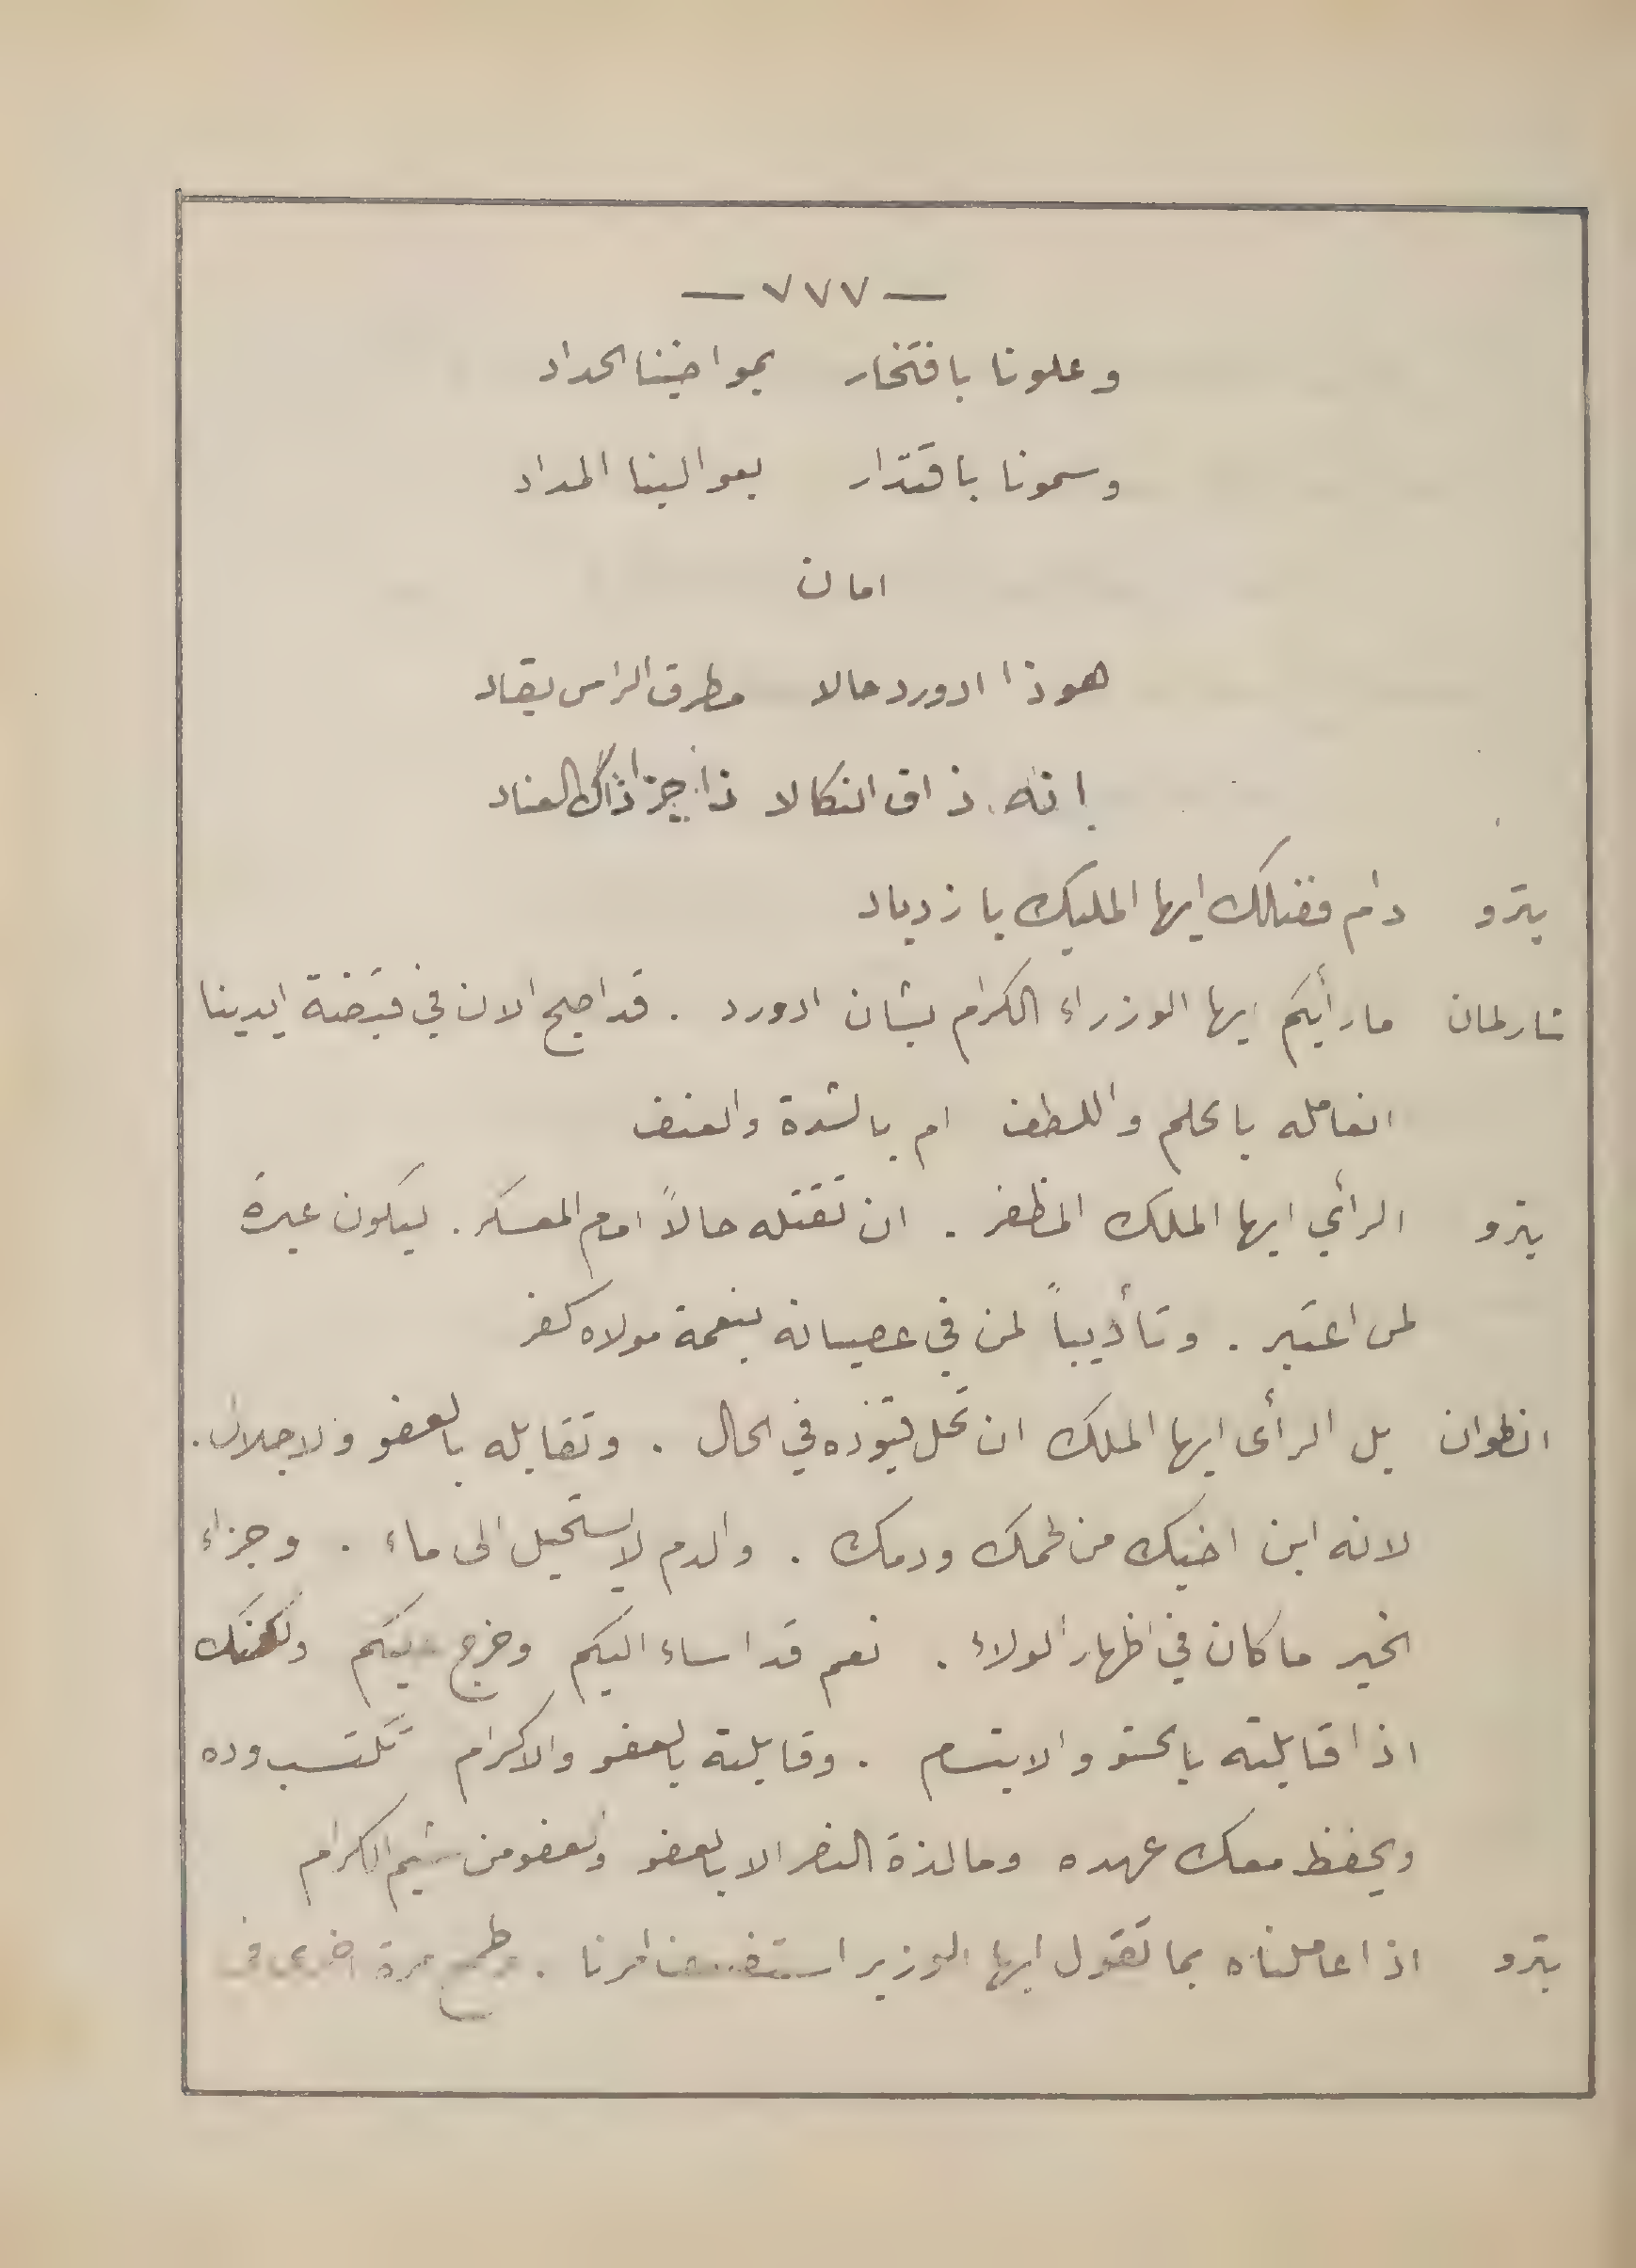 — ٧٧٧ —
وعلونا بافتخار بمواضينا الحداد
وسمونا باقتدار بعوالينا المداد
امان
هوذا ادورد حالا مطرق الراس يقاد
انه ذاق النكالا ذا جزا ذاك العناد
بترو دام فضلك ايها المليك بازدياد
شارلمان ما رأيكم ايها الوزراء الكرام بشان ادورد . قد اصبح الان في قبضة ايدينا
انعامله بالحلم واللطف ام بالشدة والعنف
بترو الرأي ايها الملك المظفر . ان تقتله حالاً امام المعسكر . ليكون عبرة
لمن اعتبر . وتأديباً لمن في عصيانه بنعمة مولاه كفر
انطوان بل الرأى ايها الملك ان تحل قيوده في الحال . وتقابله بالعفو والاجلال .
لانه ابن اخيك من لحمك ودمك . والدم لا يستحيل الى ماء . وجزاء
الخير ما كان في اظهار الولاء . نعم قد اساء اليكم وخرج ولكنك
اذا قابلته بالحنو والابتسام . وقابلته بالعفو والاكرام تكتسب وده
ويحفظ معك عهده وما لذة النصر الا بالعفو والعفو من شيم الكرام
بترو اذا عاملناه بما تقول ايها الوزير امرنا . مرة اخرى في